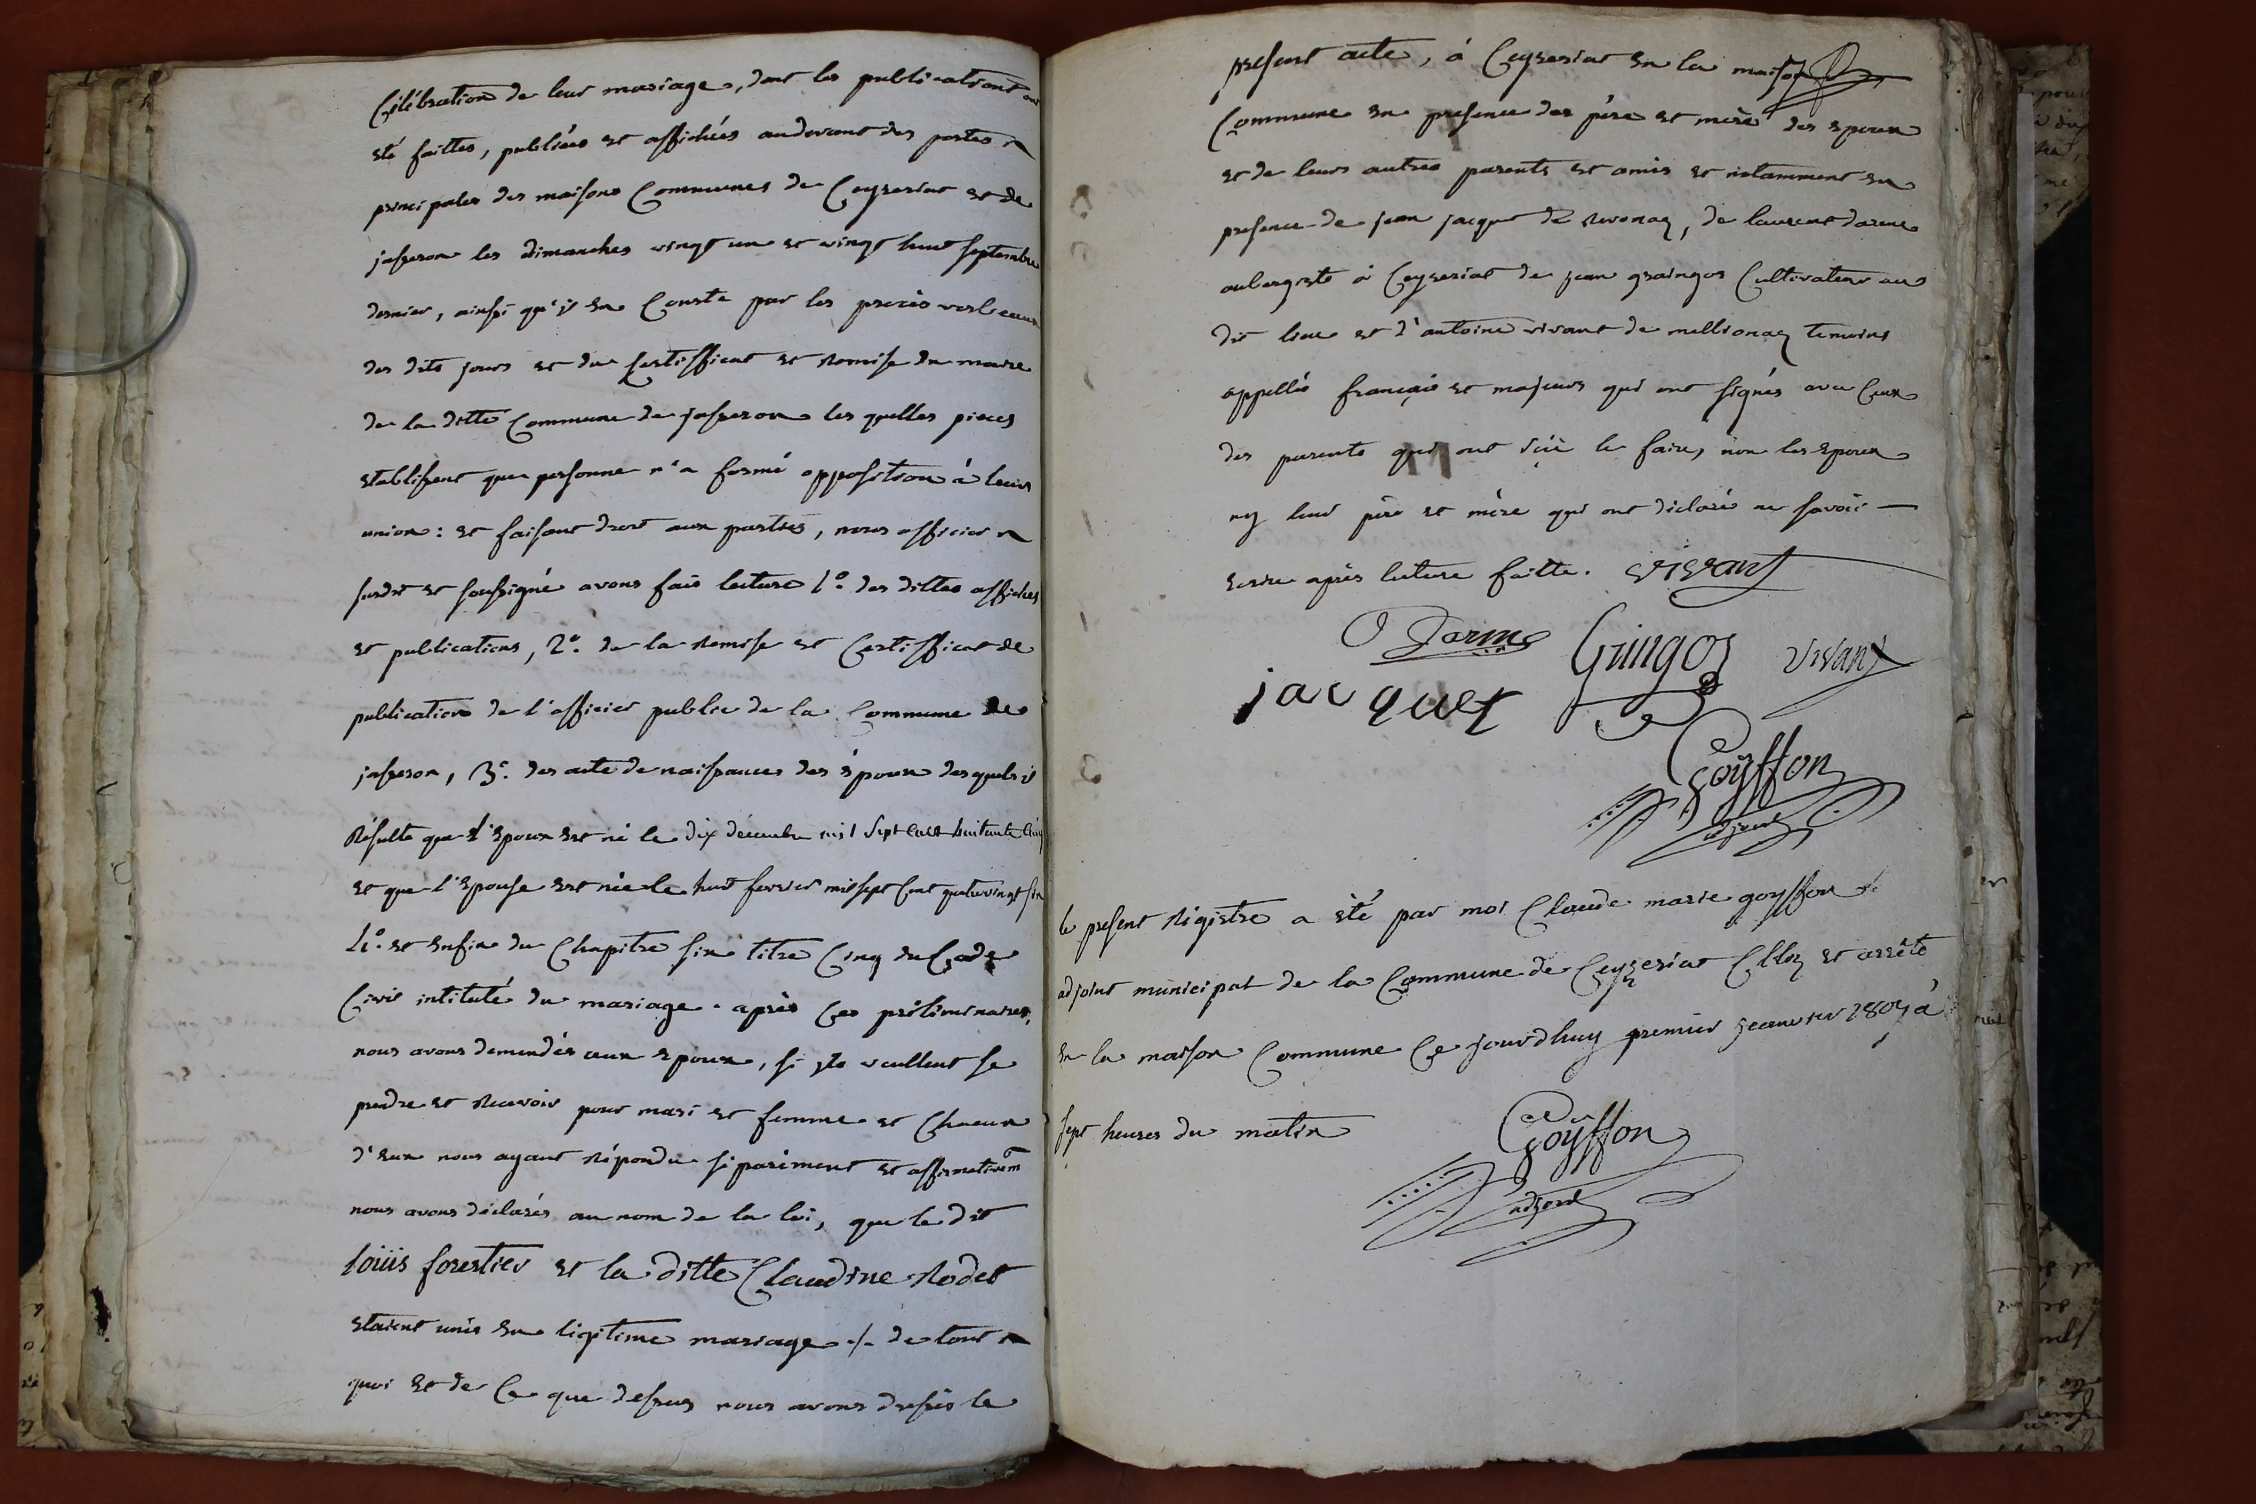 Célébration de leur mariage, dont les publications ont
été faittes, publiées et affichées audevant des portes
principales des maisons Communes de Ceyzeriat et de
jasseron les dimanches vingt un et vingt huit septembre
dernier, ainsi qu'il en Conste par les procès verbeaux
des dits jours et du Certifficat et Remise du maire
de la ditte Commune de jasseron les quelles pieces
etablissent que personne n'a formé opposition à leur
union : et faisant droit aux parties, nous officier
susdit et soussigné avons fait lecture 1°. des dittes affiches
et publications, 2°. de la Remise et Certifficat de
publication de l'officier public de la Commune de
jasseron, 3°. des acte de naissances des époux desquels il
Résulte que l'Epoux est né le dix décembre mil sept cent huitante cinq
et que l'Epouse est née le huit fevrier mil sept Cent quatrevingt six
4°. et enfin du Chapitre six titre Cinq du Code
Civil intitulé du mariage. après Ces préliminaires,
nous avons demandés aux époux, si ils veullent se
prendre et Recevoir pour mari et femme et Chacun
d'Eux nous ayant Répondu séparément et affirmativem
nous avons déclarés au nom de la loi, que le dit
loüis forestier et la ditte Claudine Rodet
etaient unis en légitime mariage ./. de tout
quoi et de Ce que dessus nous avons dressés le
présent acte, à Ceyzeriat en la maison
Commune en présence des père et mère des époux
et de leurs autres parents et amis et notamment en
présence de jean jacquet de Revonaz, de laurent darme
aubergiste à Ceyzeriat de jean graingos Cultivateur au
dit lieu et d'antoine vivant de mellionaz temoins
appellés français et majeurs qui ont signés avec Ceux
des parents qui ont sçu le faire, non les époux
ny leur père et mère qui ont déclaré ne savoir —
ecrire après lecture faitte. vivant
Darme Guingos vivant
jacquet
Goÿffon
adjoint
le present Régistre a été par moi Claude marie goyffon
adjoint municipal de la Commune de Ceyzeriat Clloz et arrêté
en la maison Commune Ce jourdhuy premier jeanvier 1807 à
sept heures du matin
Goÿffon
adjoint